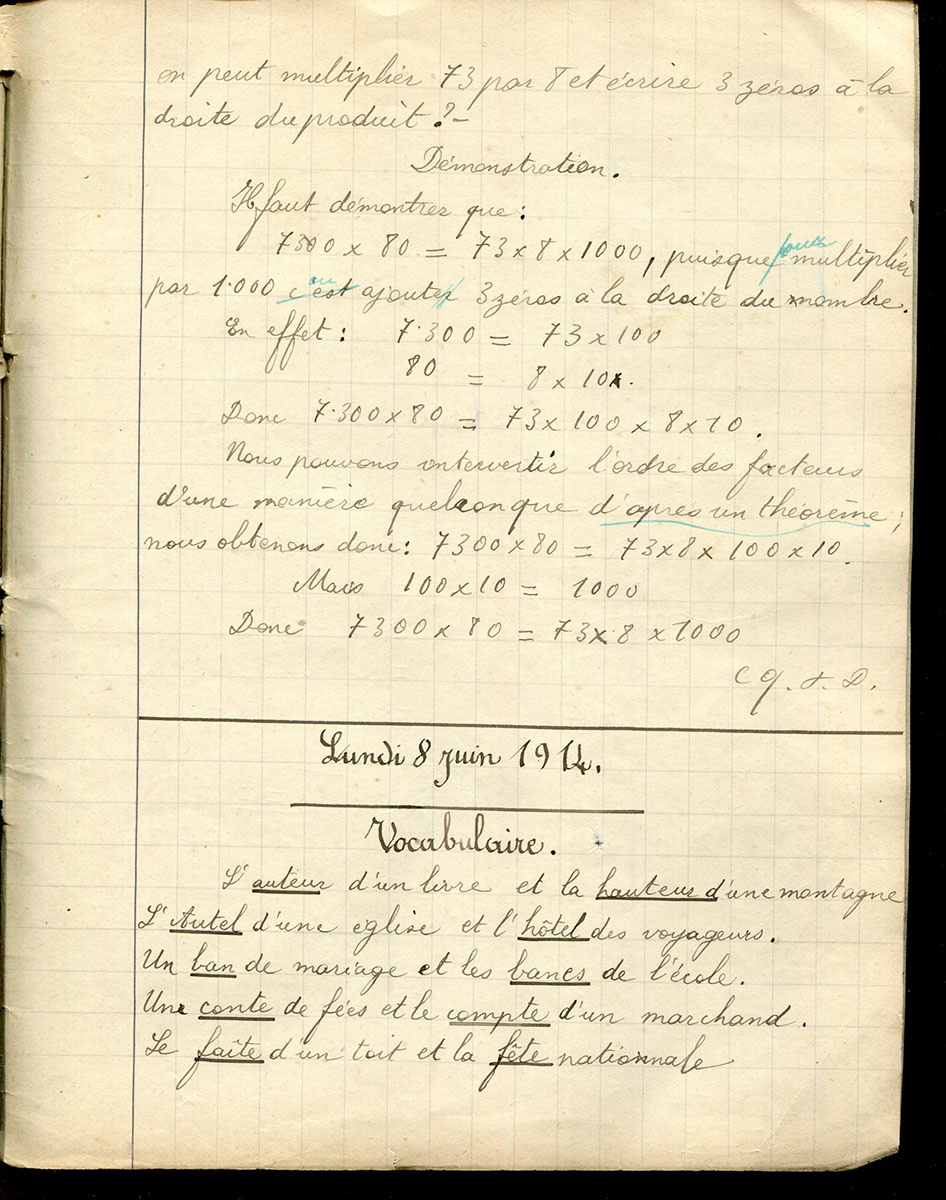 on peut multiplier 73 par 8 et écrire 3 zéros à la
droite du produit ? -
Démonstration.
Il faut démontrer que :
7300 x 80 = 73 x 8 x 1000, puisque pour multiplier
par 1.000 c'est ajouter 3 zéros à la droite du nombre.
En effet : 7.300 = 73 x 100
80 = 8 x 10.
Donc 7.300 x 80 = 73 x 100 x 8 x 10.
Nous pouvons intervertir l'ordre des facteurs
d'une manière quelconque d'après un théorème ;
nous obtenons donc : 7300 x 80 = 73 x 8 x 100 x 10.
Mais 100 x 10 = 1000
Donc 7300 x 80 = 73 x 8 x 1000
C Q. F. D.
Lundi 8 juin 1914.
Vocabulaire.
L'auteur d'un livre et la hauteur d'une montagne
L'Autel d'une eglise et l'hôtel des voyageurs.
Un ban de mariage et les bancs de l'école.
Un conte de fées et le compte d'un marchand.
Le faîte d'un toit et la fête nationnale